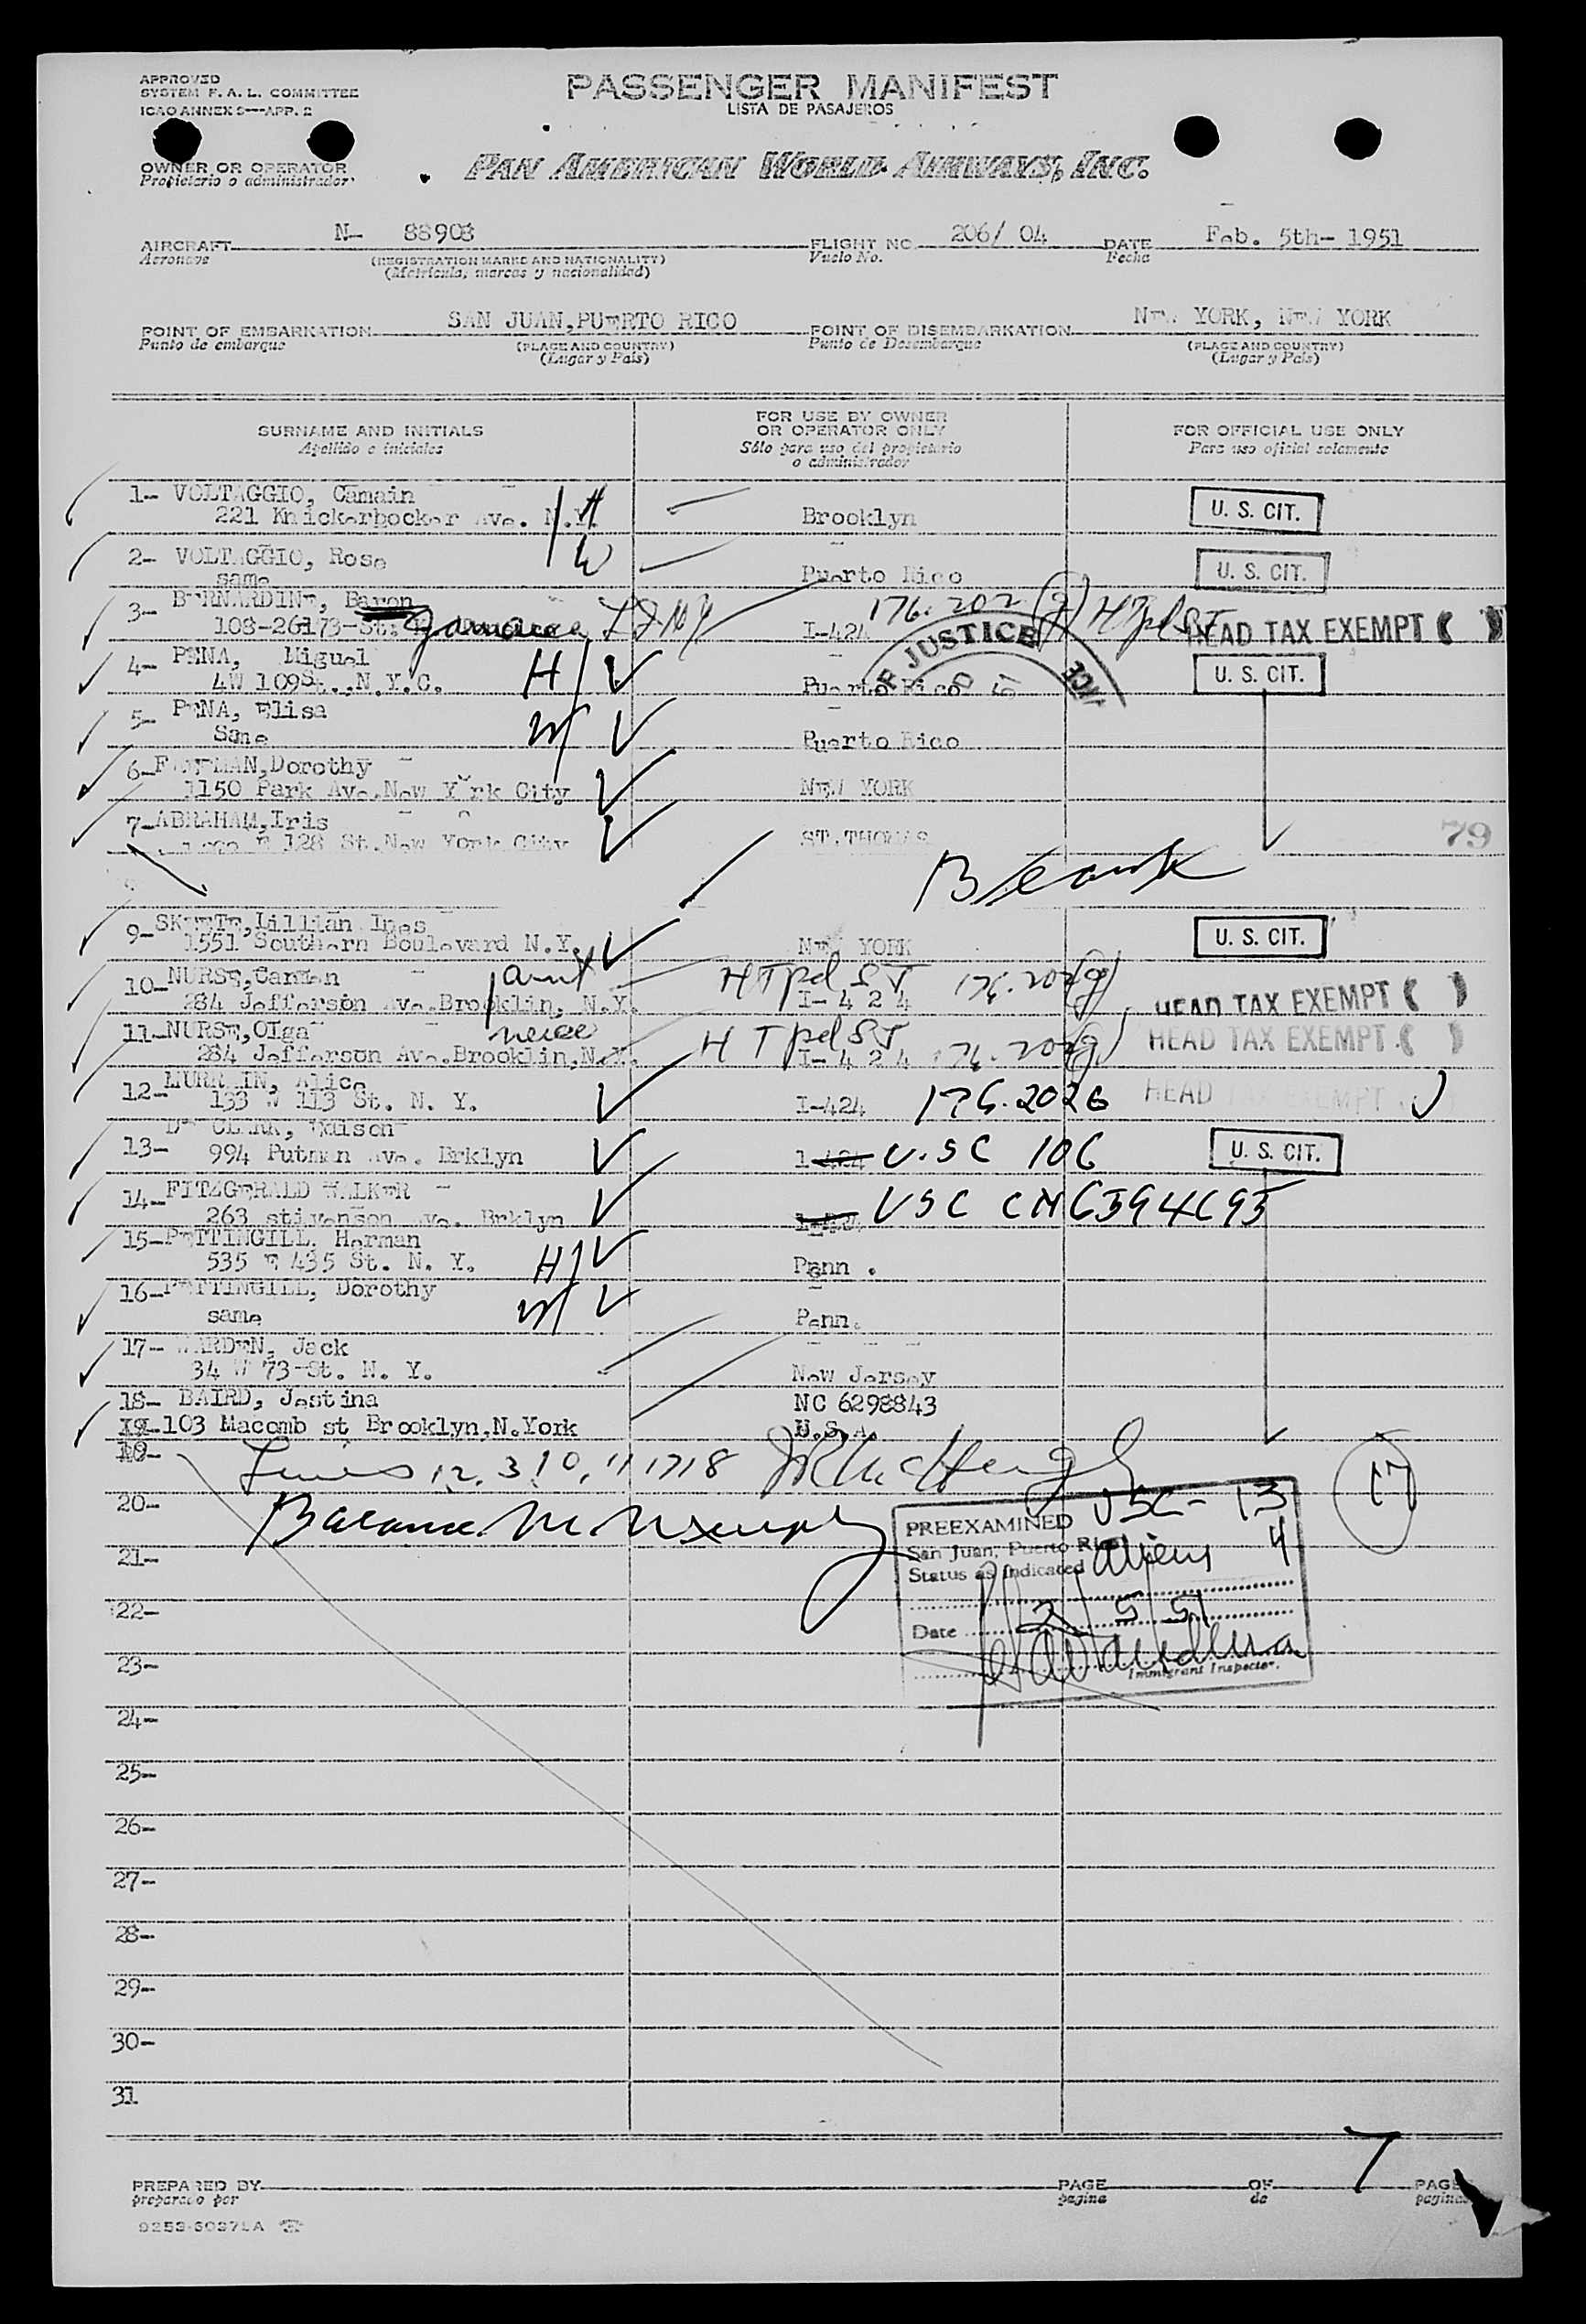 APPROVED
SYSTEM F. A. L. COMMITTEE
ICAO ANNEX 9—APP. 2
PASSENGER MANIFEST
LISTA DE PASAJEROS
OWNER OR OPERATOR
Propietario o administrador
PAN AMERICAN WORLD AIRWAYS, INC.
AIRCRAFT N- 88903 FLIGHT NO. 206/ 04 DATE Feb. 5th- 1951
Aeronave (REGISTRATION MARKS AND NATIONALITY) Vuelo No. Fecha
(Matrícula, marcas y nacionalidad)
POINT OF EMBARKATION SAN JUAN, PUERTO RICO POINT OF DISEMBARKATION NEW YORK, NEW YORK
Punto de embarque (PLACE AND COUNTRY) Punto de Desembarque (PLACE AND COUNTRY)
(Lugar y País) (Lugar y País)
SURNAME AND INITIALS FOR USE BY OWNER OR OPERATOR ONLY FOR OFFICIAL USE ONLY
Apellido e iniciales Sólo para uso del propietario o administrador Para uso oficial solamente
1- VOLTAGGIO, Camain H
221 Knickerbocker Ave. N.Y. Brooklyn U. S. CIT.
2- VOLTAGGIO, Rose W
same Puerto Rico U. S. CIT.
3- BERNARDINE, Baron 176.202 HTpd SJ
108-26173-St. Jamaica I-424 HEAD TAX EXEMPT ( )
JUSTICE
4- PENA, Miguel H
4W 109St.,N.Y.C. Puerto Rico U. S. CIT.
5- PENA, Elisa W
Same Puerto Rico
6- Dorothy
1150 Park Ave.New York City NEW YORK
7- ABRAHAM, Iris
E 128 St.New York City ST.THOMAS 79
Blank
9- SKEETE, Lillian Ines
1551 Southern Boulevard N.Y. NEW YORK U. S. CIT.
10- NURSE, Carmen aunt HTpd SJ 176.202(g)
284 Jefferson Ave.Brooklin, N.Y. I-424 HEAD TAX EXEMPT ( )
11- NURSE, Olga niece HTpd SJ 176.202(g)
284 Jefferson Ave.Brooklin, N.Y. I-424 HEAD TAX EXEMPT ( )
12- Alice
133 W 113 St. N. Y. I-424 176.202G HEAD TAX EXEMPT
13- DE CLERK,
994 Putman Ave. Brklyn U.SC 106 U. S. CIT.
14- FITZGERALD WALKER
263 stivenson Ave. Brklyn USC CN6394695
15- PETTINGILL, Herman H
535 E 435 St. N. Y. Penn.
16- PETTINGILL, Dorothy W
same Penn.
17- WARDEN, Jack
34 W 73-St. N. Y. New Jersey
18- BAIRD, Jestina NC 6298843
103 Macomb st Brooklyn,N.York U.S.A.
19- Lines 12, 3 10, 11 17 18
17
20- Balance
21-
PREEXAMINED USC- 13
San Juan, Puerto Rico
Status as indicated Aliens 4
Date 2 5 51
Immigrant Inspector.
22-
23-
24-
25-
26-
27-
28-
29-
30-
31
7
PREPARED BY PAGE OF PAGES
preparado por pagina de paginas